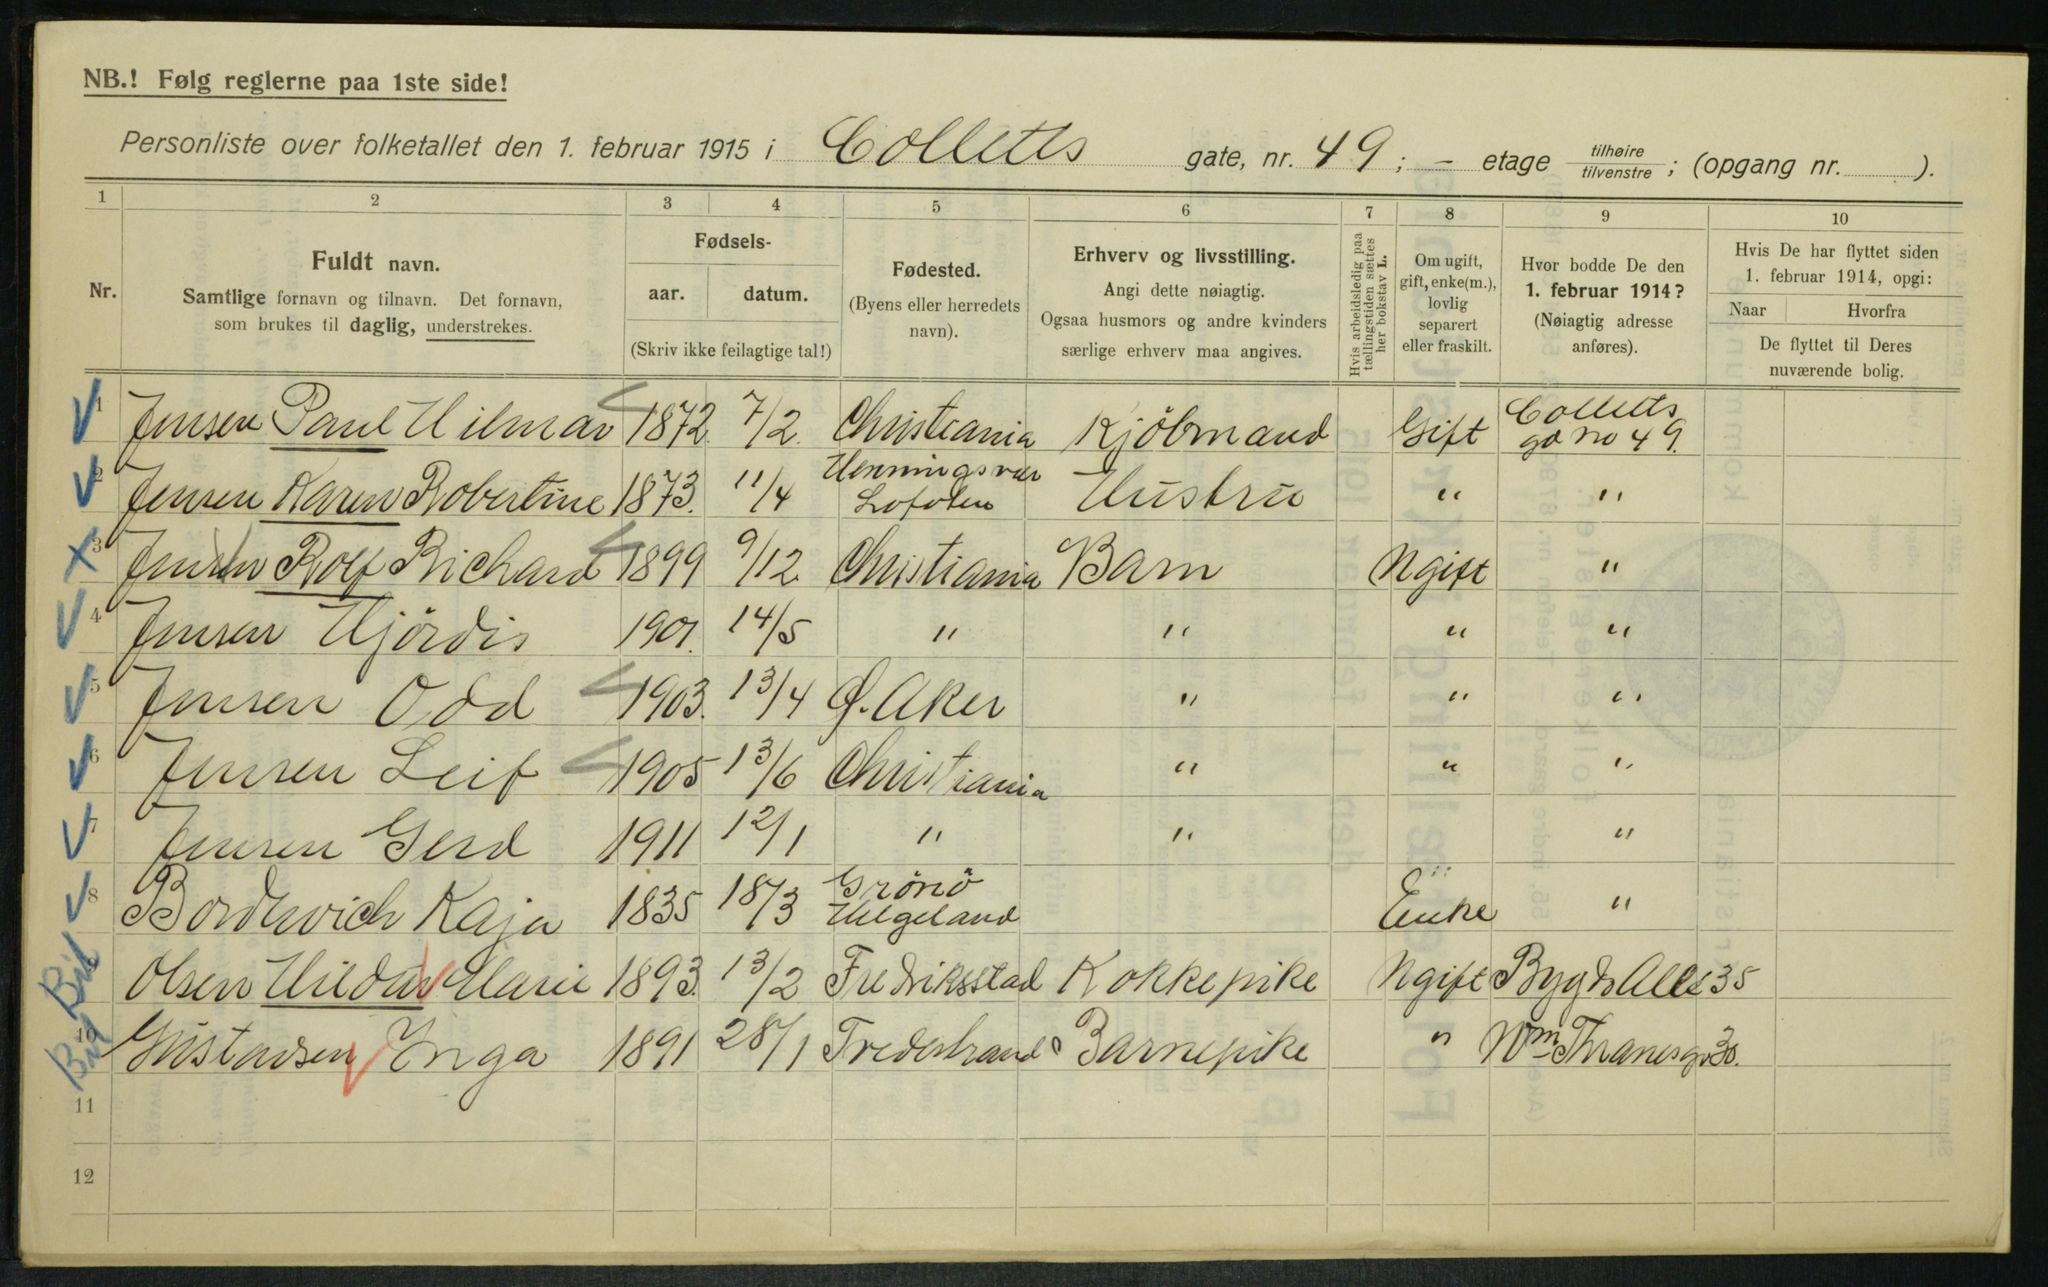 NB.! Følg reglerne paa 1ste side!
Personliste over folketallet den 1. februar 1915 i Colletts gate, nr. 49; – etage tilhøire tilvenstre; (opgang nr. ).
1 2 3 4 5 6 7 8 9 10
Nr.
Fuldt navn.
Samtlige fornavn og tilnavn. Det fornavn, som brukes til daglig, understrekes.
Fødsels-
aar. datum.
(Skriv ikke feilagtige tal!)
Fødested.
(Byens eller herredets navn).
Erhverv og livsstilling.
Angi dette nøiagtig.
Ogsaa husmors og andre kvinders særlige erhverv maa angives.
Hvis arbeidsledig paa tællingstiden sættes her bokstav L.
Om ugift, gift, enke(m.), lovlig separert eller fraskilt.
Hvor bodde De den 1. februar 1914?
(Nøiagtig adresse anføres).
Hvis De har flyttet siden 1. februar 1914, opgi:
Naar Hvorfra
De flyttet til Deres nuværende bolig.
1 Jensen Paul Hilmar 1872. 7/2. Christiania Kjöbmand Gift Colletts gd no 49.
2 Jensen Karen Robertine 1873. 11/4 Henningsvær Lofoten Hustru " "
3 Jensen Rolf Richard 1899 9/12 Christiania Barn Ugift "
4 Jensen Hjördis 1901. 14/5 " " " "
5 Jensen Odd 1903. 13/4 Ø. Aker " " "
6 Jensen Leif 1905 13/6 Christiania " " "
7 Jensen Gerd 1911 12/1 " " "
8 Borderwich Kaja 1835 18/3 Grönö Helgeland Enke "
Bil 9 Olsen Hildur Marie 1893. 13/2 Fredriksstad Kokkepike Ugift Bygdø Alle 35
Bil 10 Gustavsen Inga 1891 28/1 Tvedestrand Barnepike " Wm Thranesg 30.
11
12